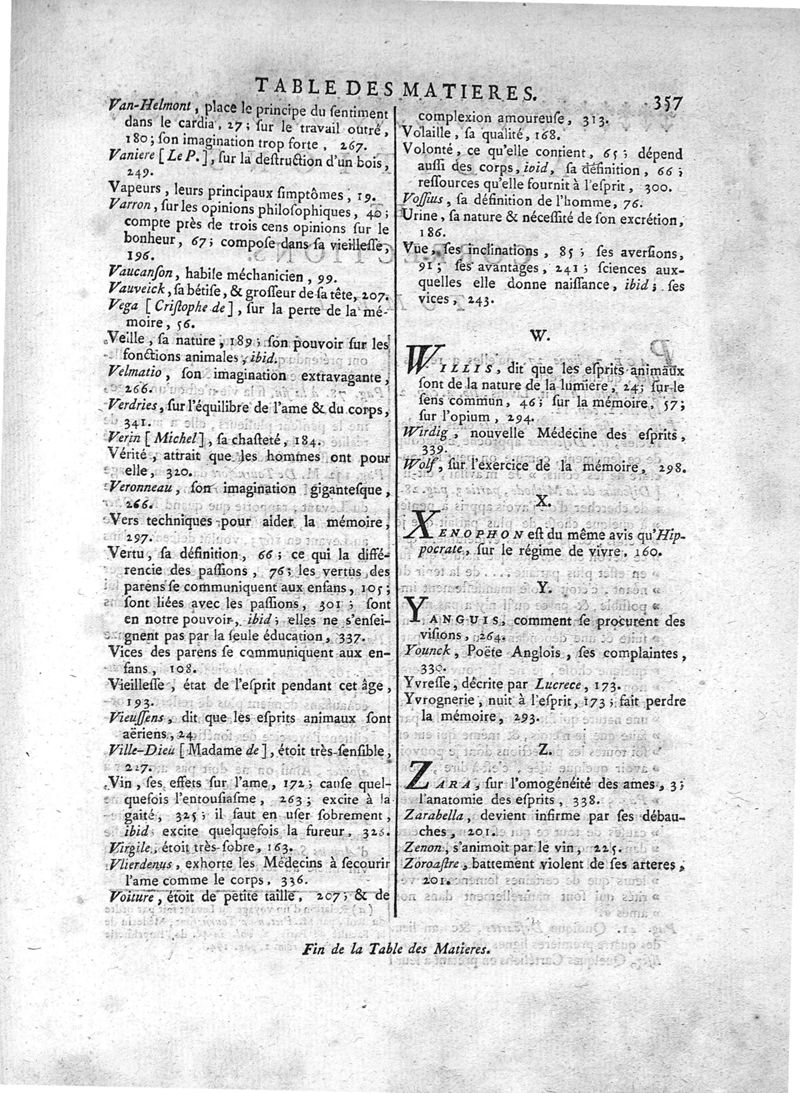 TABLE DES MATIERES. 357
Van-Helmont, place le principe du ſentiment
dans le cardia, 27; ſur le travail outré,
180; ſon imagination trop forte, 267.
Vaniere [Le P.], ſur la deſtruction d'un bois,
249.
Vapeurs, leurs principaux ſimptômes, 19.
Varron, ſur les opinions philoſophiques, 40;
compte près de trois cens opinions ſur le
bonheur, 67; compoſe dans ſa vieilleſſe,
196.
Vaucanſon, habile méchanicien, 99.
Vauveick, ſa bétiſe, & groſſeur de ſa tête, 207.
Vega [Criſtophe de], ſur la perte de la mé-
moire, 56.
Veille, ſa nature, 189; ſon pouvoir ſur les
fonctions animales, ibid.
Velmatio, ſon imagination extravagante,
266.
Verdries, ſur l'équilibre de l'ame & du corps,
341.
Verin [Michel], ſa chaſteté, 184.
Vérité, attrait que les hommes ont pour
elle, 320.
Veronneau, ſon imagination giganteſque,
266.
Vers techniques pour aider la mémoire,
297.
Vertu, ſa définition, 66; ce qui la diffé-
rencie des paſſions, 76; les vertus des
parens ſe communiquent aux enfans, 105;
ſont liées avec les paſſions, 301; ſont
en notre pouvoir, ibid; elles ne s'enſei-
gnent pas par la ſeule éducation, 337.
Vices des parens ſe communiquent aux en-
fans, 108.
Vieilleſſe, état de l'eſprit pendant cet âge,
193.
Vieuſſens, dit que les eſprits animaux ſont
aëriens, 24
Ville-Dieu [Madame de], étoit très-ſenſible,
227.
Vin, ſes effets ſur l'ame, 172; cauſe quel-
quefois l'entouſiaſme, 263; excite à la
gaité, 325; il faut en uſer ſobrement,
ibid excite quelquefois la fureur, 326.
Virgile, étoit très-ſobre, 163.
Vlierdenus, exhorte les Médecins à ſecourir
l'ame comme le corps, 336.
Voiture, étoit de petite taille, 207; & de
complexion amoureuſe, 313.
Volaille, ſa qualité, 168.
Volonté, ce qu'elle contient, 65; dépend
auſſi des corps, ibid, ſa définition, 66;
reſſources qu'elle fournit à l'eſprit, 300.
Voſſius, ſa définition de l'homme, 76.
Urine, ſa nature & néceſſité de ſon excrétion,
186.
Vue, ſes inclinations, 85; ſes averſions,
91; ſes avantages, 241; ſciences aux-
quelles elle donne naiſſance, ibid; ſes
vices, 243.
W.
WILLIS, dit que les eſprits animaux
ſont de la nature de la lumiere, 24; ſur le
ſens commun, 46; ſur la mémoire, 57;
ſur l'opium, 294.
Wirdig, nouvelle Médecine des eſprits,
339.
Wolf, ſur l'exercice de la mémoire, 298.
X.
XENOPHON eſt du même avis qu'Hip-
pocrate, ſur le régime de vivre, 160.
Y.
YANGUIS, comment ſe procurent des
viſions, 264.
Younck, Poëte Anglois, ſes complaintes,
330.
Yvreſſe, décrite par Lucrece, 173.
Yvrognerie, nuit à l'eſprit, 173; fait perdre
la mémoire, 293.
Z.
ZARA, ſur l'omogénéité des ames, 3;
l'anatomie des eſprits, 338.
Zarabella, devient infirme par ſes débau-
ches, 201.
Zenon, s'animoit par le vin, 225.
Zoroaſtre, battement violent de ſes arteres,
201.
Fin de la Table des Matieres.